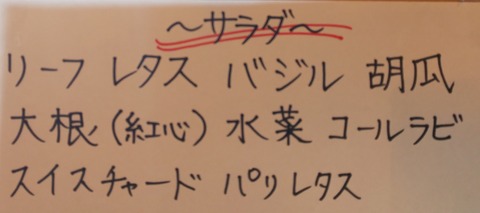 ～サラダ～
リーフ レタス バジル 胡瓜
大根（紅心） 水菜 コールラビ
スイスチャード パリレタス